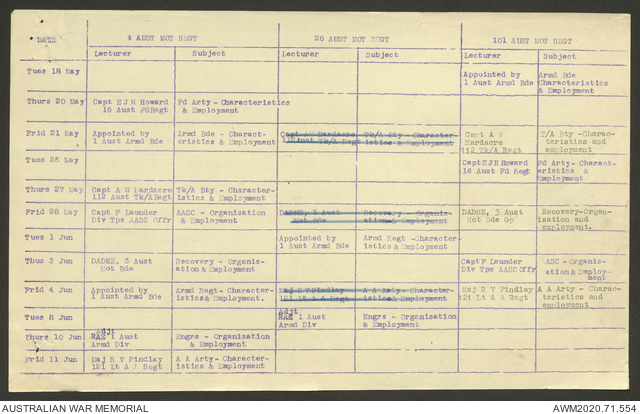 4 AUST MOT REGT 26 AUST MOT REGT 101 AUST MOT REGT
DATE Lecturer Subject Lecturer Subject Lecturer Subject
Tues 18 May Appointed by Armd Bde
1 Aust Armd Bde Characteristics
& Employment
Thurs 20 May Capt E J H Howard Fd Arty - Characteristics
16 Aust Fd Regt & Employment
Fri 21 May Appointed by Armd Bde - Charact- Capt A W Hardacre Tk/A Bty - Character- Capt A W T/A Bty -Charac-
1 Aust Armd Bde eristics & Employment 112 Aust Tk/A Regt istics & Employment Hardacre teristics and
112 Tk/A Regt employment
Tues 25 May Capt E J H Howard Fd Arty - Charact-
16 Aust Fd Regt eristics &
Employment
Thurs 27 May Capt A W Hardacre Tk/A Bty - Character-
112 Aust Tk/A Regt istics & Employment
Fri 28 May Capt F Launder AASC - Organisation DADME, 3 Aust Recovery - Organis- DADME, 3 Aust Recovery-Organ-
Div Tps AASC Offr & Employment Mot Bde ation & Employment Mot Bde Gp isation and
employment.
Tues 1 Jun Appointed by Armd Regt -Character-
1 Aust Armd Bde istics & Employment
Thus 3 Jun DADME, 3 Aust Recovery - Organis- Capt F Launder AASC - Organis-
Mot Bde ation & Employment Div Tps AASC Offr ation & Employ-
ment
Fri 4 Jun Appointed by Armd Regt- Charact- Maj R V Findlay A A Arty - Character- Maj R V Findlay A A Arty - Charac-
1 Aust Armd Bde eristics & Employment. 121 Lt A A Regt istics & Employment 121 Lt A A Regt teristics and
employment
Tues 8 Jun Adjt
RAE 1 Aust Engrs - Organisation
Armd Div & Employment
Thurs 10 Jun Adjt
RAE 1 Aust Engrs - Organisation
Armd Div & Employment
Frid 11 Jun Maj R V Findlay A A Arty - Character-
121 Lt A A Regt istics & Employment
AUSTRALIAN WAR MEMORIAL AWM2020.71.554